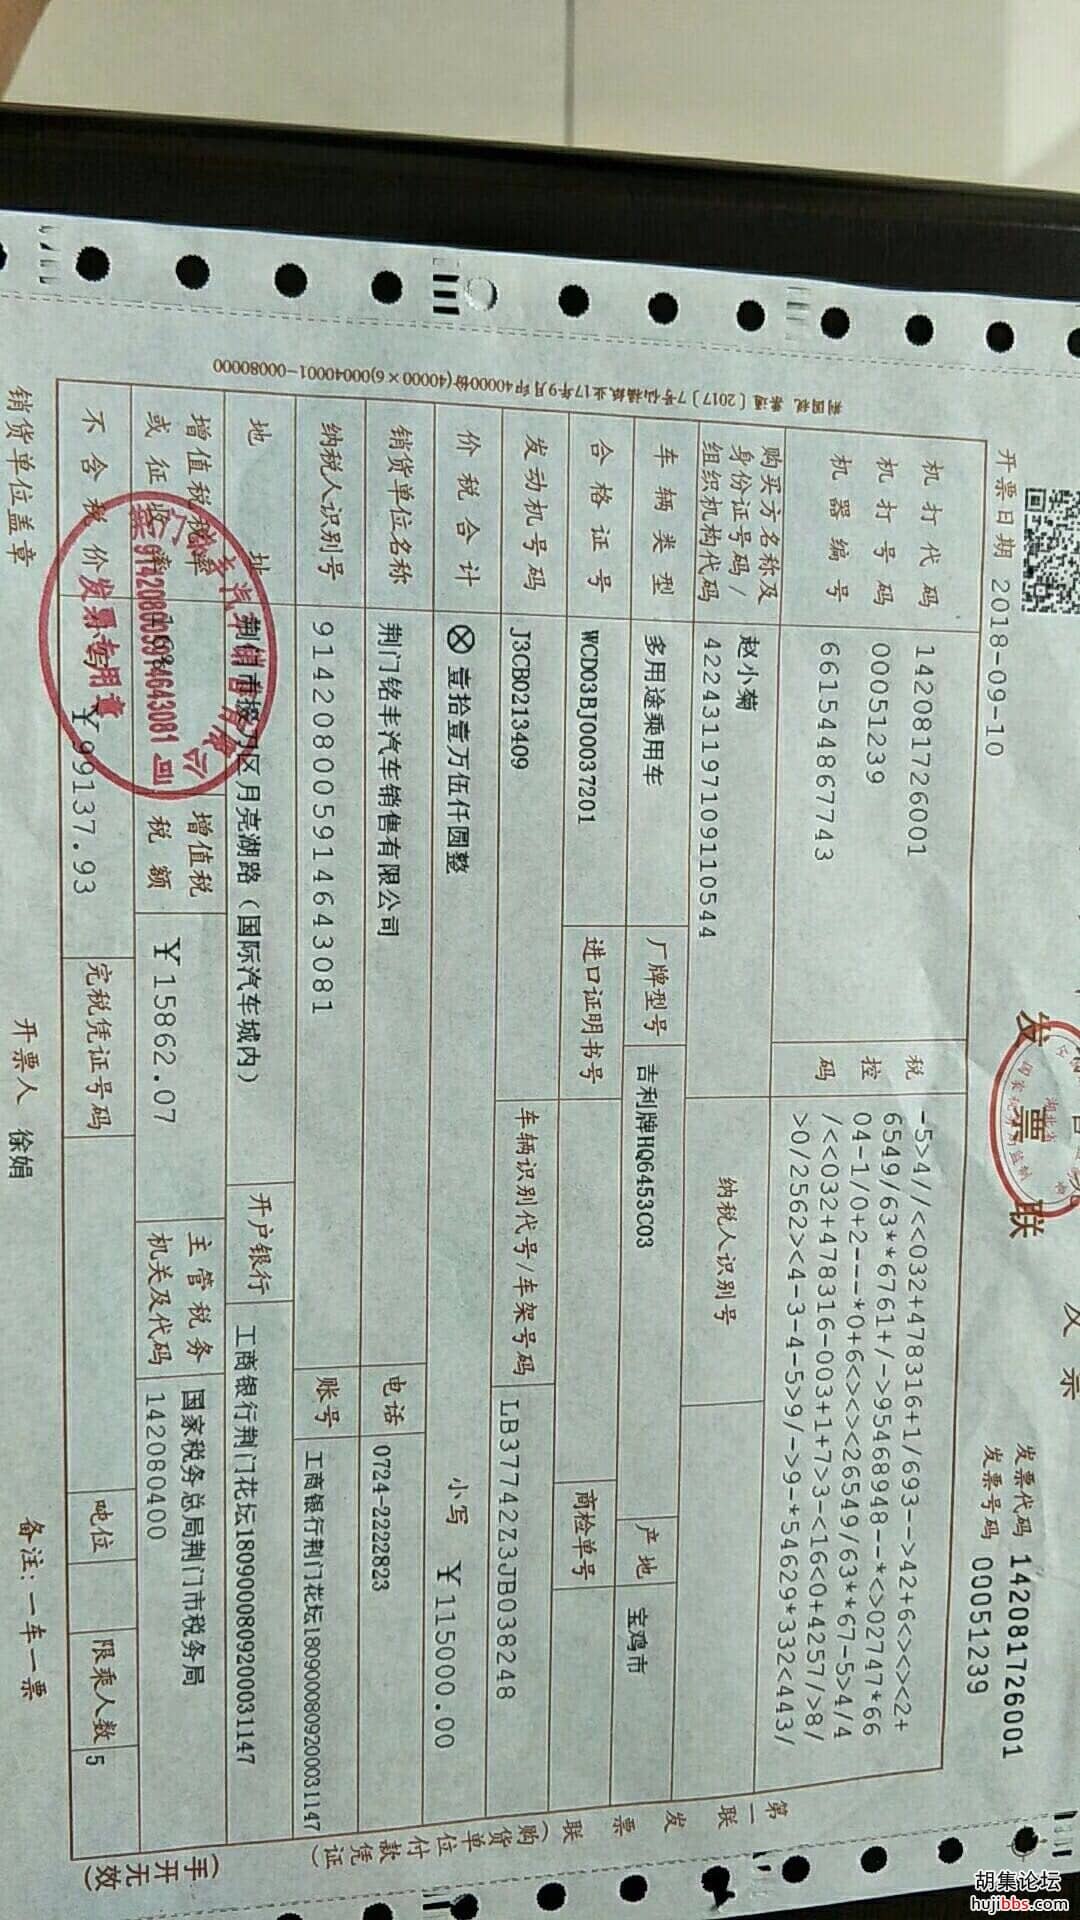 发票联
发票代码 142081726001
发票号码 00051239
开票日期 2018-09-10
机打代码 142081726001
机打号码 00051239
机器编号 661544867743
税控码
-5>4//<<032+478316+1/693-->42+6<><><2+
6549/63**6761+/->95468948--*<>02747*66
04-1/0+2---*0+6<><><26549/63**67-5>4/4
/<<032+478316-003+1+7>3-<16<0+4257/>8/
>0/2562><4-3-4-5>9/->9-*54629*332<443/
购买方名称及身份证号码/组织机构代码
赵小菊
422431197109110544
纳税人识别号
车辆类型 多用途乘用车 厂牌型号 吉利牌HQ6453C03 产地 宝鸡市
合格证号 WCD03BJ00037201 进口证明书号 商检单号
发动机号码 J3CB0213409 车辆识别代号/车架号码 LB37742Z3JB038248
价税合计 ⊗壹拾壹万伍仟圆整 小写 ¥115000.00
销货单位名称 荆门铭丰汽车销售有限公司 电话 0724-2222823
纳税人识别号 914208005914643081 账号 工商银行荆门花坛1809000809200031147
地址 荆门市掇刀区月亮湖路（国际汽车城内） 开户银行 工商银行荆门花坛1809000809200031147
增值税税率或征收率 增值税税额 ¥15862.07 主管税务机关及代码 国家税务总局荆门市税务局
142080400
不含税价 ¥99137.93 完税凭证号码 吨位 限乘人数 5
销货单位盖章 开票人 徐娟 备注：一车一票
第一联 发票联（购货单位付款凭证）
（手开无效）
914208005914643081
发票专用章
胡集论坛
hujibbs.com